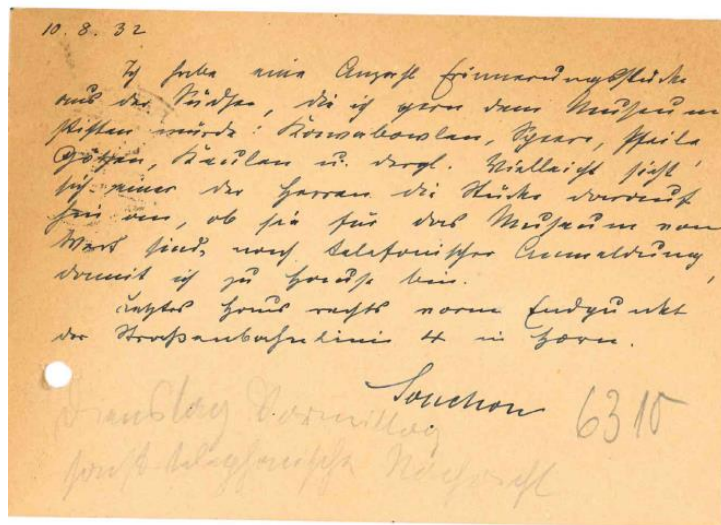 10. 8. 32
Ich habe eine Anzahl Erinnerungsstücke
aus der Südsee, die ich gern dem Museum
stiften würde: Kawabowlen, Speere, Pfeile,
Götzen, Keulen u. dergl. Vielleicht sieht
sich einer der Herren die Stücke darauf
hin an, ob sie für das Museum von
Wert sind, nach telefonischer Anmeldung,
damit ich zu Hause bin.
Letztes Haus rechts vorm Endpunkt
der Straßenbahnlinie 4 in Horn.
Souchon
6310
Dienstag Vormittag
sonst telephonische Nachricht